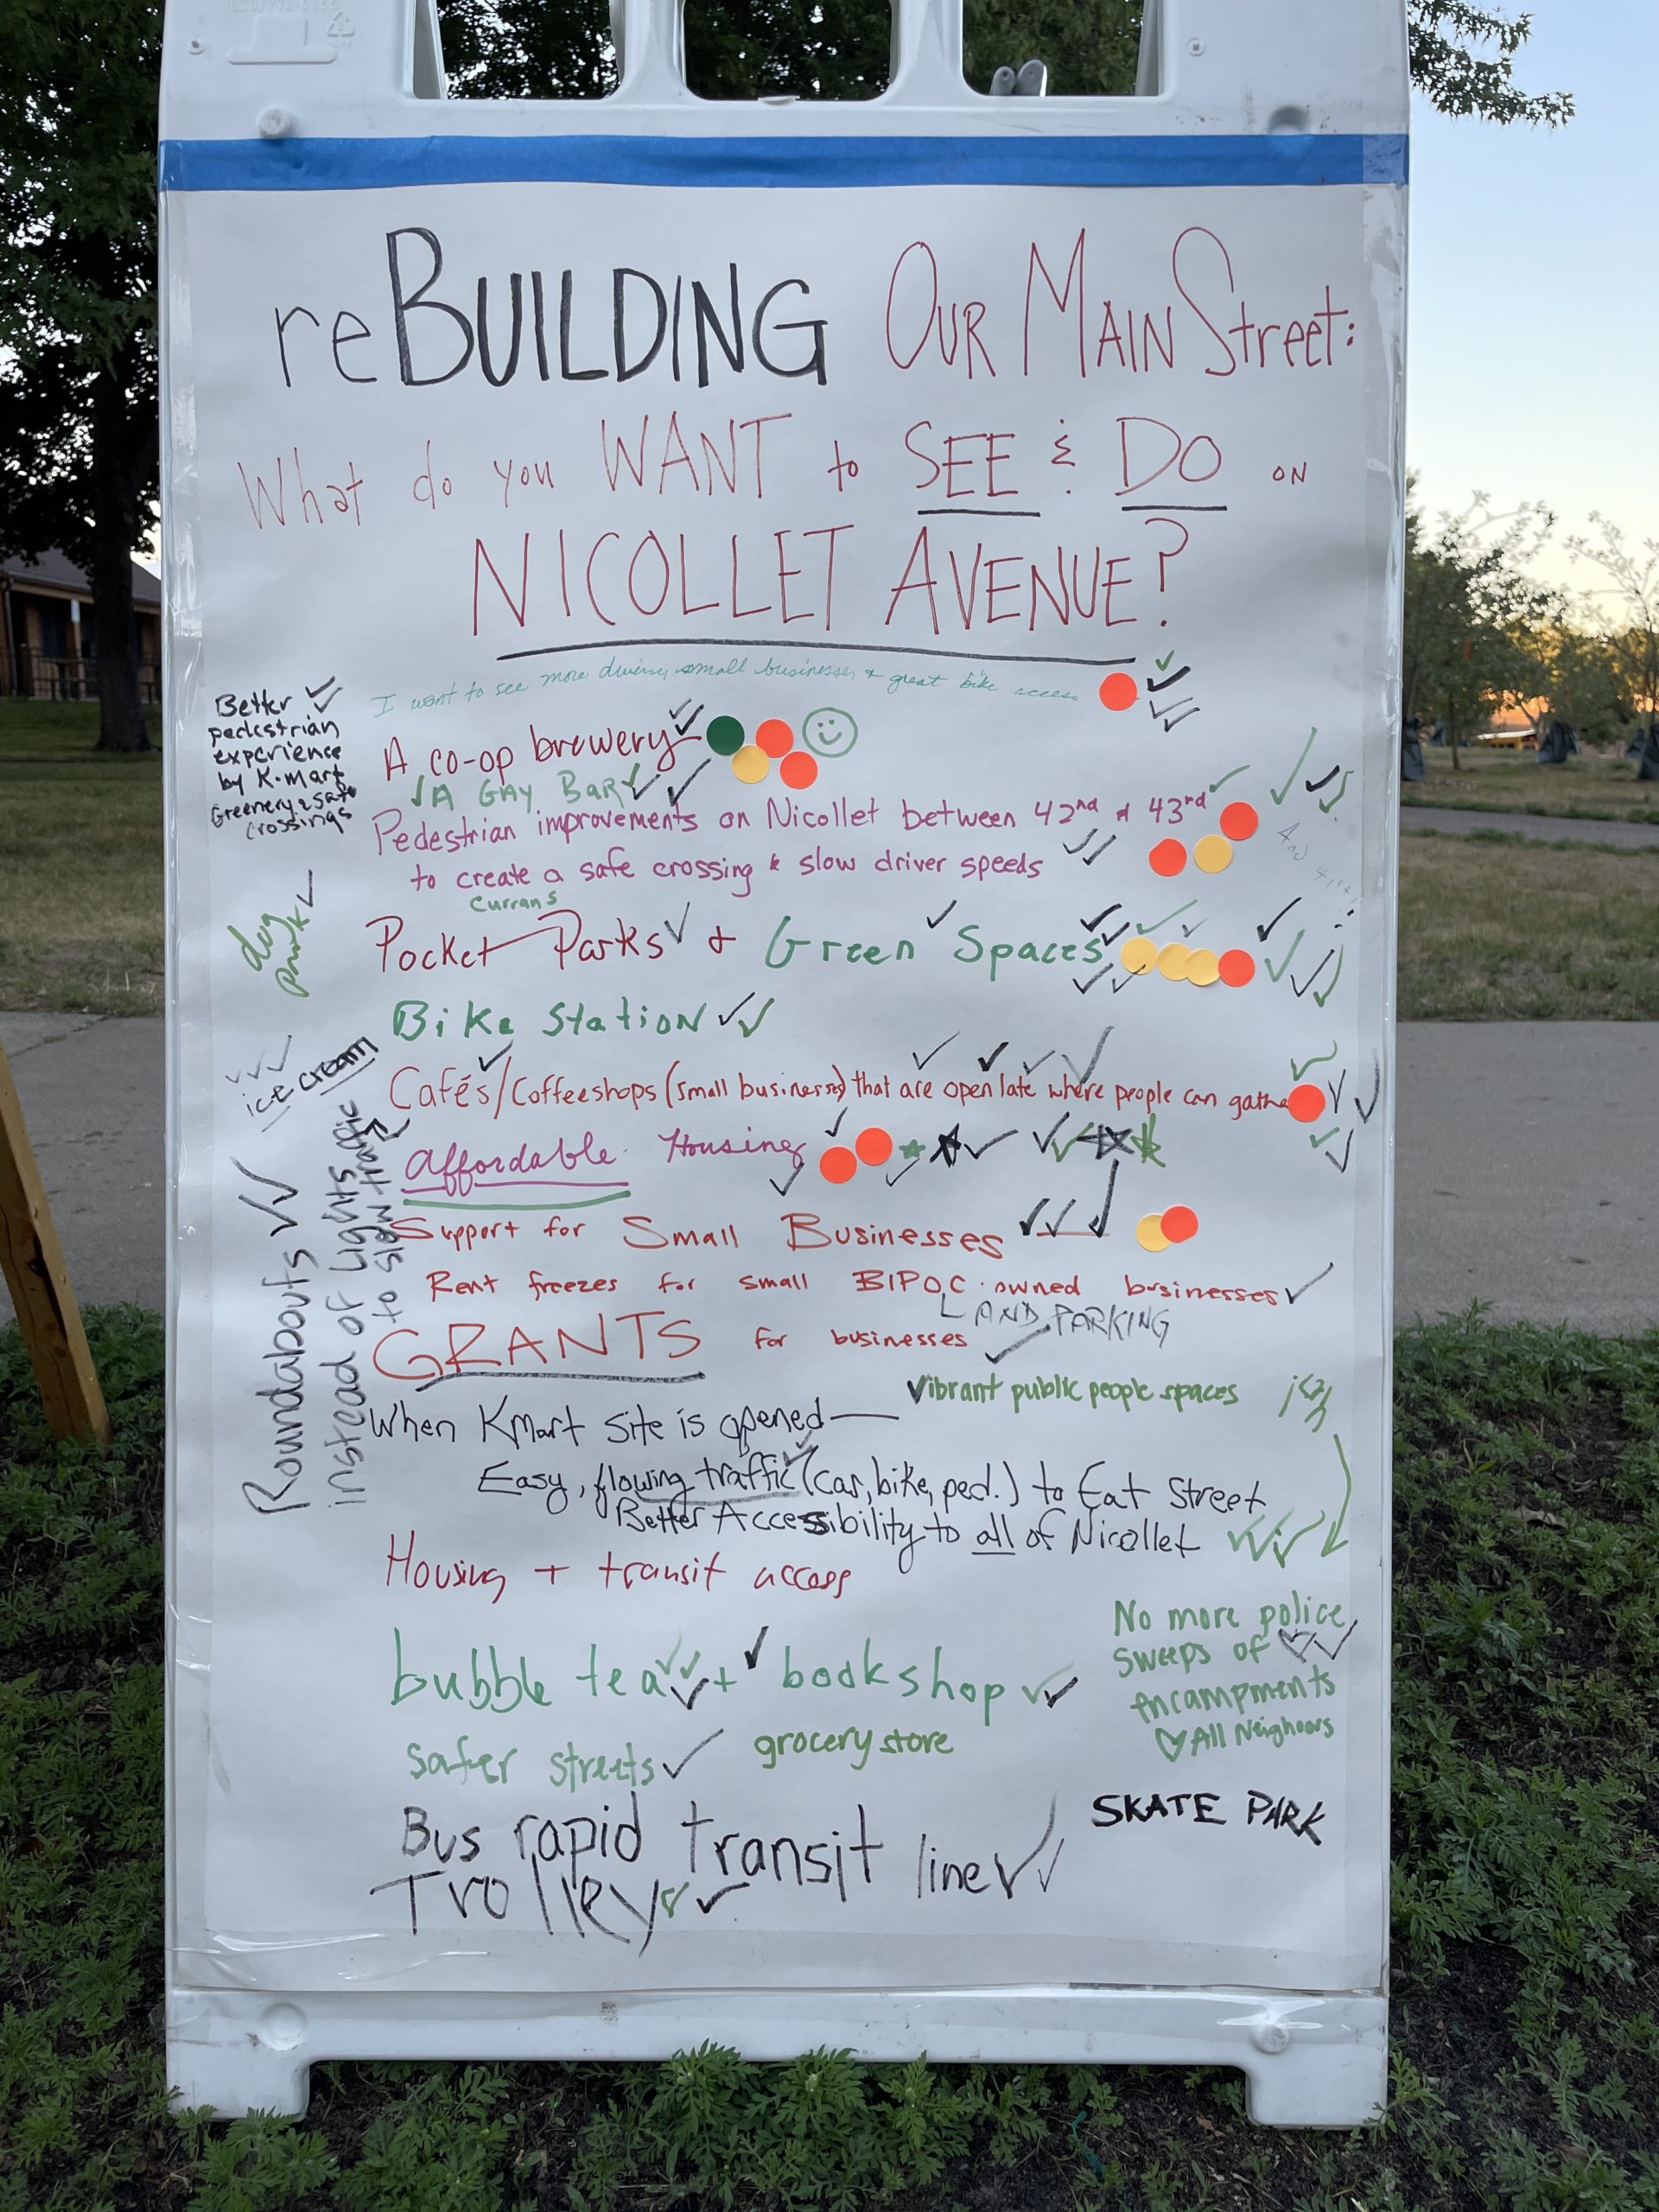 reBUILDING OUR MAIN Street:
What do you WANT to SEE & DO ON
NICOLLET AVENUE?
I want to see more small businesses & great bike access
Better
pedestrian
experience
by K-mart
Greenery & safe
crossings
A co-op brewery
A GAY BAR
Pedestrian improvements on Nicollet between 42nd & 43rd
to create a safe crossing & slow driver speeds
And 41st!
dog
park
Currans
Pocket Parks + Green Spaces
Bike Station
ice cream
Cafés/Coffeeshops (small businesses) that are open late where people can gather
affordable Housing
Roundabouts
instead of Lights
to slow traffic
Support for Small Businesses
Rent freezes for small BIPOC-owned businesses
AND PARKING
GRANTS for businesses
Vibrant public people spaces
When Kmart site is opened—
Easy, flowing traffic (car, bike, ped.) to Eat Street
Better Accessibility to all of Nicollet
Housing + transit access
No more police
sweeps of
encampments
All Neighbors
bubble tea + bookshop
safer streets
grocery store
SKATE PARK
Bus rapid transit line
Trolley